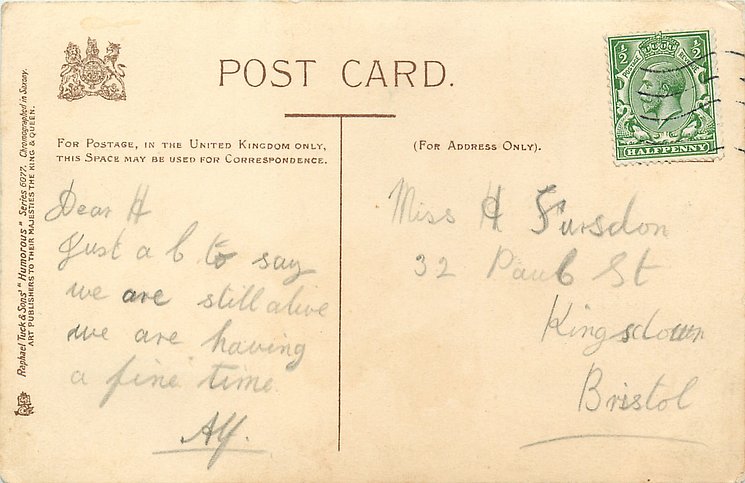 POST CARD.
FOR POSTAGE, IN THE UNITED KINGDOM ONLY,
THIS SPACE MAY BE USED FOR CORRESPONDENCE.
(FOR ADDRESS ONLY).
Raphael Tuck & Sons' "Humorous" Series 6077. Chromographed in Saxony.
ART PUBLISHERS TO THEIR MAJESTIES THE KING & QUEEN.
½ ½
POSTAGE REVENUE
HALFPENNY
Dear H
Just a l to say
we are still alive
we are having
a fine time
Alf.
Miss H Fursdon
32 Paul St
Kingsdown
Bristol